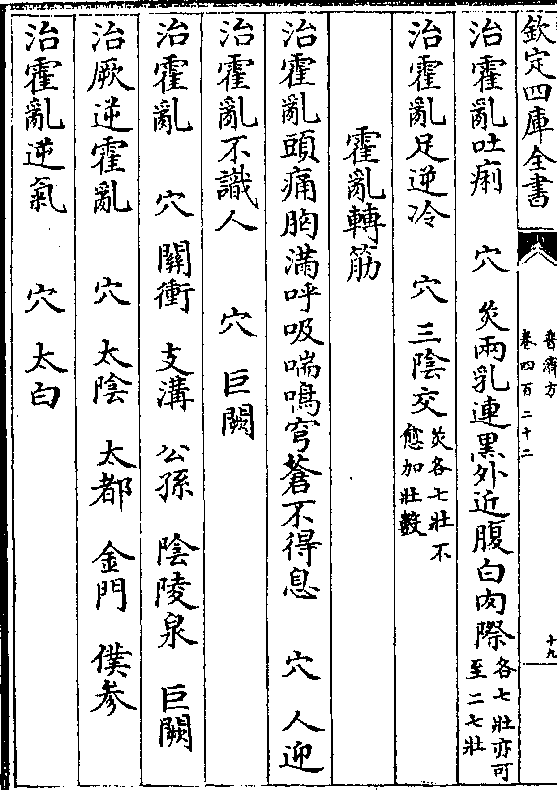 欽定四庫全書
普濟方
卷四百二十二
十九
治霍亂吐痢　穴　灸兩乳連黑外近腹白肉際各七壯亦可至二七壯
治霍亂足逆冷　穴　三陰交灸各七壯不愈加壯數
霍亂轉筋
治霍亂頭痛胸滿呼吸喘鳴穹蒼不得息　穴　人迎
治霍亂不識人　穴　巨闕
治霍亂　穴　關衝　支溝　公孫　陰陵泉　巨闕
治厥逆霍亂　穴　太陰　太都　金門　僕參
治霍亂逆氣　穴　太白